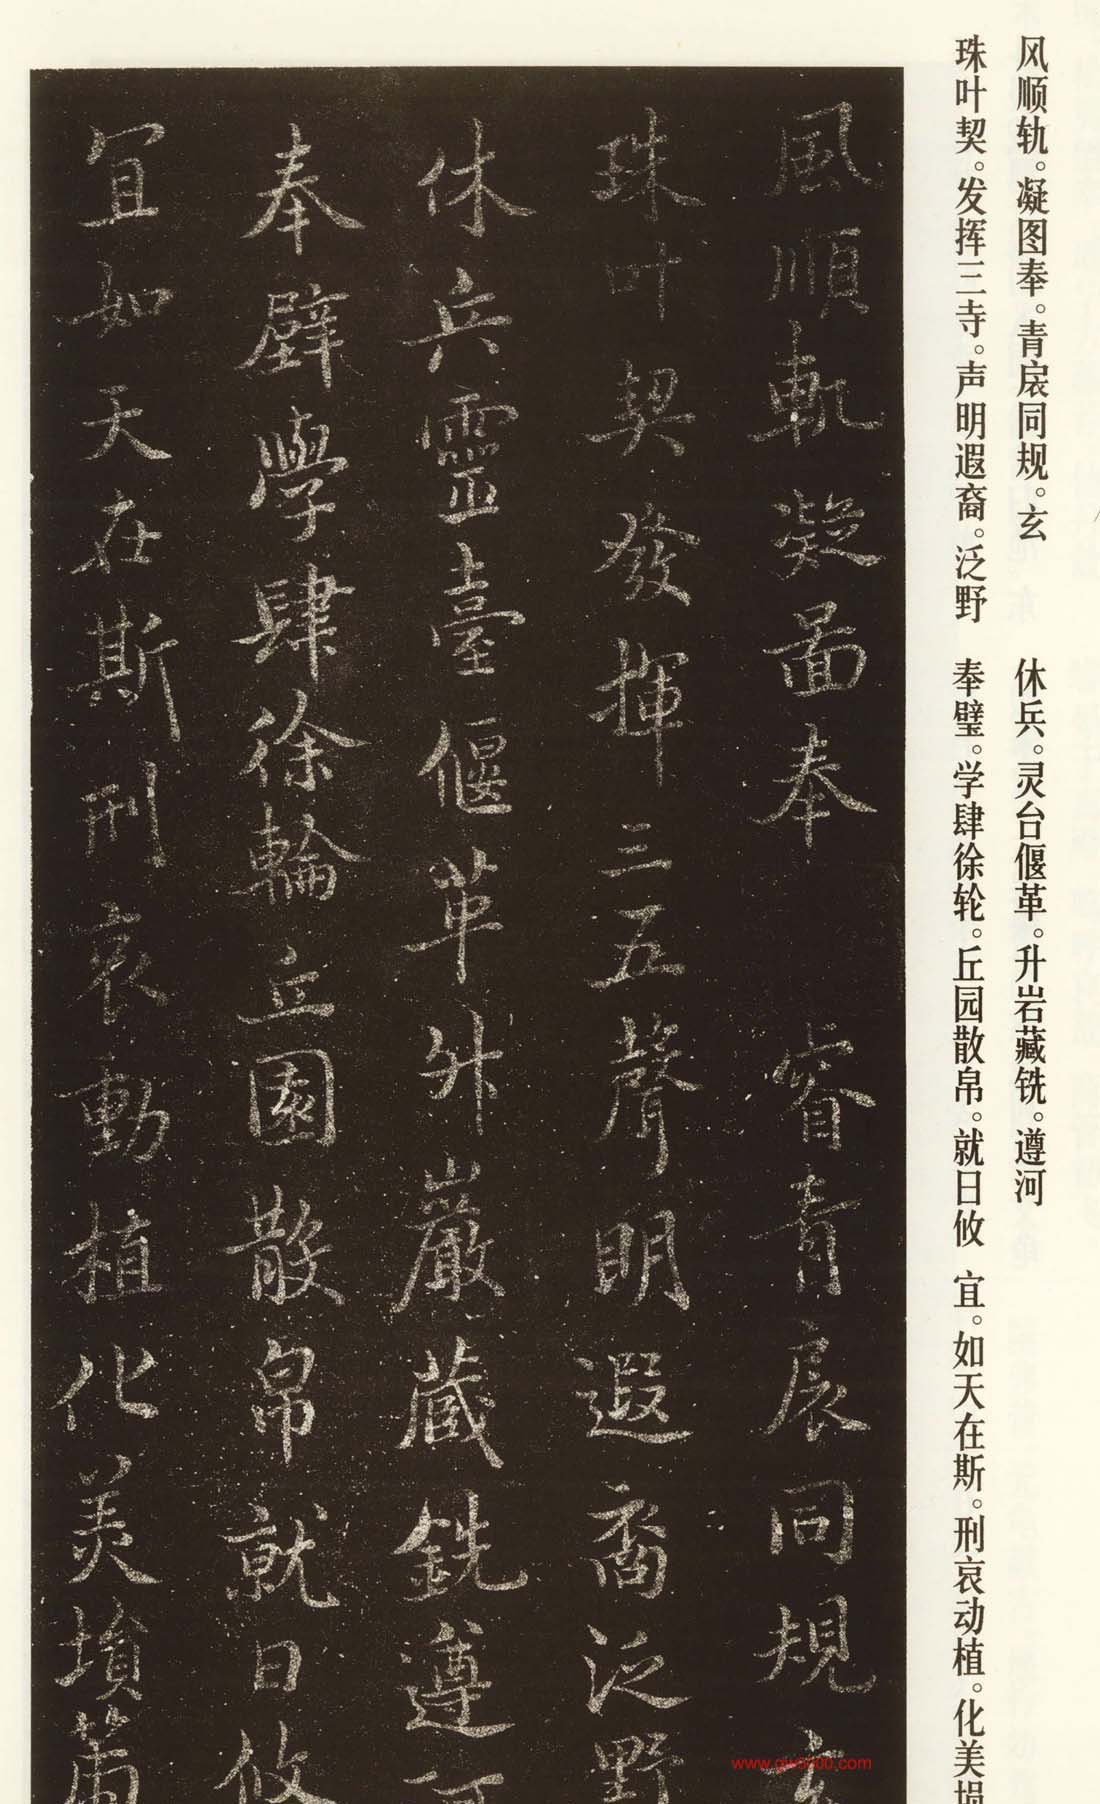 风顺轨。凝图奉。青扆同规。玄
珠叶契。发挥三寺。声明遐裔。泛野
休兵。灵台偃革。升岩藏铣。遵河
奉璧。学肆徐轮。丘园散帛。就日攸
宜。如天在斯。刑哀动植。化美埙
風順軌凝啚奉睿青扆同規玄
珠叶契發揮三五聲明遐裔泛野
休兵靈臺偃革升巖藏銑遵河
奉璧學肆徐輪丘園散帛就日攸
宜如天在斯刑哀動植化美塤
www.gw9000.com